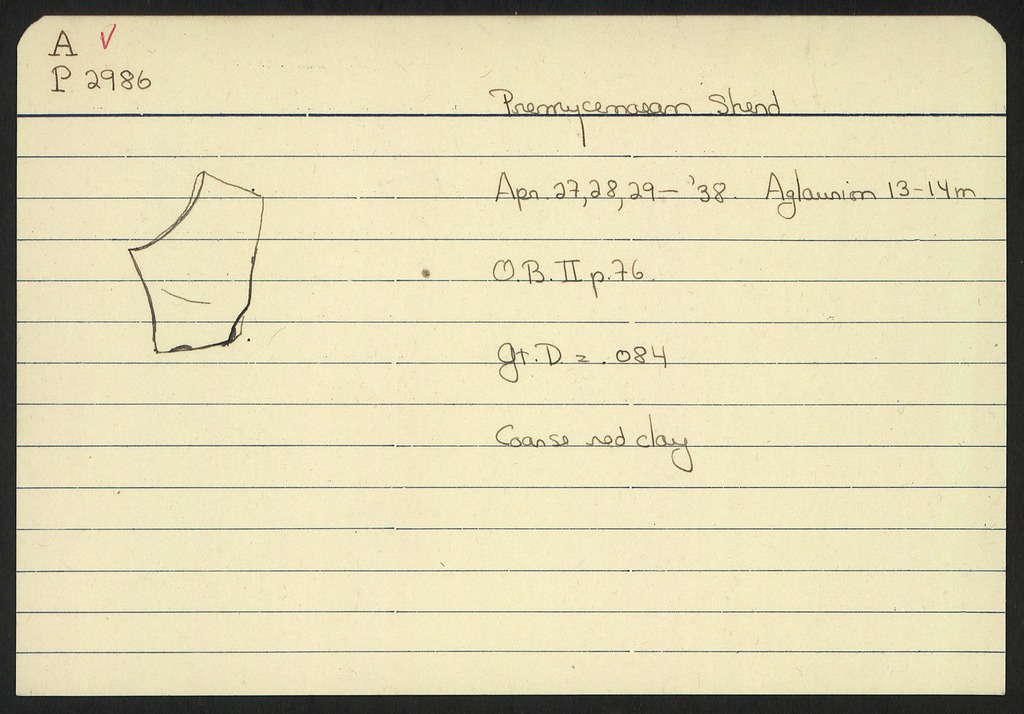 A ✓
P 2986
Premycenaean Sherd
Apr. 27, 28, 29 – '38. Aglaurion 13-14 m.
O.B. II p. 76.
gr. D = .084
Coarse red clay